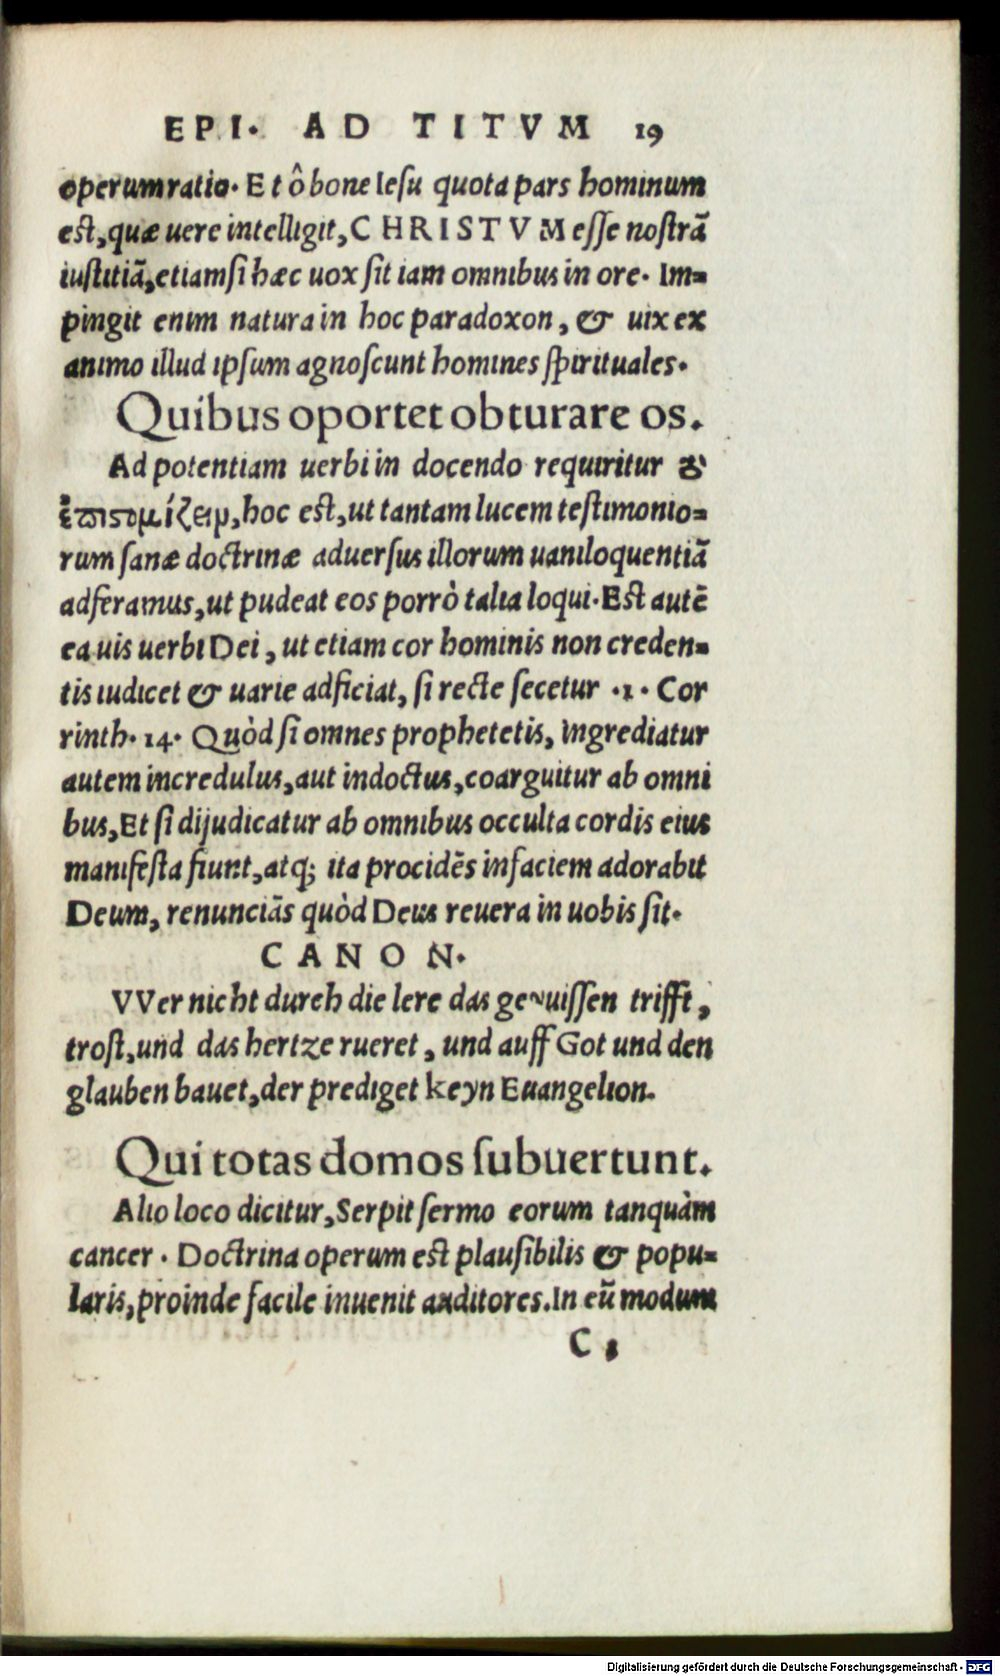 EPI. AD TITVM 19
operum ratio. Et ô bone Iesu quota pars hominum
est, quæ uere intelligit, CHRISTVM esse nostrā
iustitiā, etiamsi hæc uox sit iam omnibus in ore. Im-
pingit enim natura in hoc paradoxon, & uix ex
animo illud ipsum agnoscunt homines spirituales.
Quibus oportet obturare os.
Ad potentiam uerbi in docendo requiritur τὸ
ἐπιστομίζειν, hoc est, ut tantam lucem testimonio-
rum sanæ doctrinæ aduersus illorum uaniloquentiā
adferamus, ut pudeat eos porrò talia loqui. Est autē
ea uis uerbi Dei, ut etiam cor hominis non creden-
tis iudicet & uarie adficiat, si recte secetur .1. Cor
rinth. 14. Quòd si omnes prophetetis, ingrediatur
autem incredulus, aut indoctus, coarguitur ab omni
bus, Et si dijudicatur ab omnibus occulta cordis eius
manifesta fiunt, atq; ita procidēs in faciem adorabit
Deum, renunciās quòd Deus reuera in uobis sit.
CANON.
VVer nicht durch die lere das gevuissen trifft,
trost, und das hertze rueret, und auff Got und den
glauben bauet, der prediget keyn Euangelion.
Qui totas domos subuertunt.
Alio loco dicitur, Serpit sermo eorum tanquàm
cancer. Doctrina operum est plausibilis & popu-
laris, proinde facile inuenit auditores. In eū modum
C
Digitalisierung gefördert durch die Deutsche Forschungsgemeinschaft - DFG